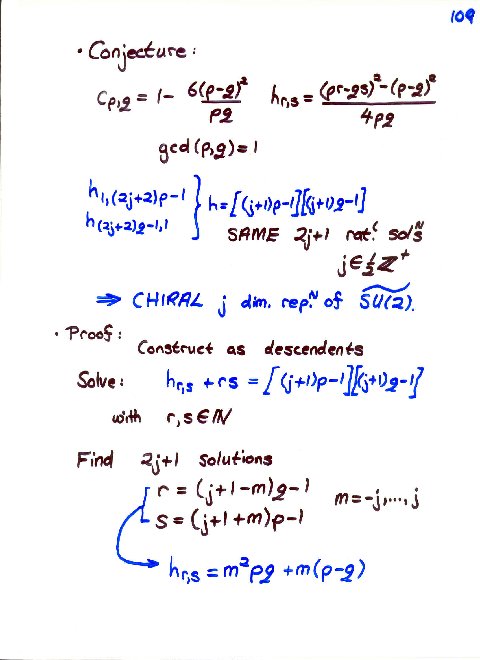 109
• Conjecture:
C_{p,q} = 1 - 6(p-q)²/pq   h_{r,s} = ((pr-qs)² - (p-q)²)/4pq
gcd(p,q)=1
h_{1,(2j+2)p-1}
h_{(2j+2)q-1,1} } h = [(j+1)p-1][(j+1)q-1]
SAME 2j+1 rat.ˡ solᴺs
j ∈ ½ℤ⁺
⇒ CHIRAL j dim. rep.ᴺ of S͠U(2).
• Proof:
Construct as descendents
Solve: h_{r,s} + rs = [(j+1)p-1][(j+1)q-1]
with r,s ∈ ℕ
Find 2j+1 solutions
r = (j+1-m)q-1   m = -j,...,j
s = (j+1+m)p-1
h_{r,s} = m²pq + m(p-q)